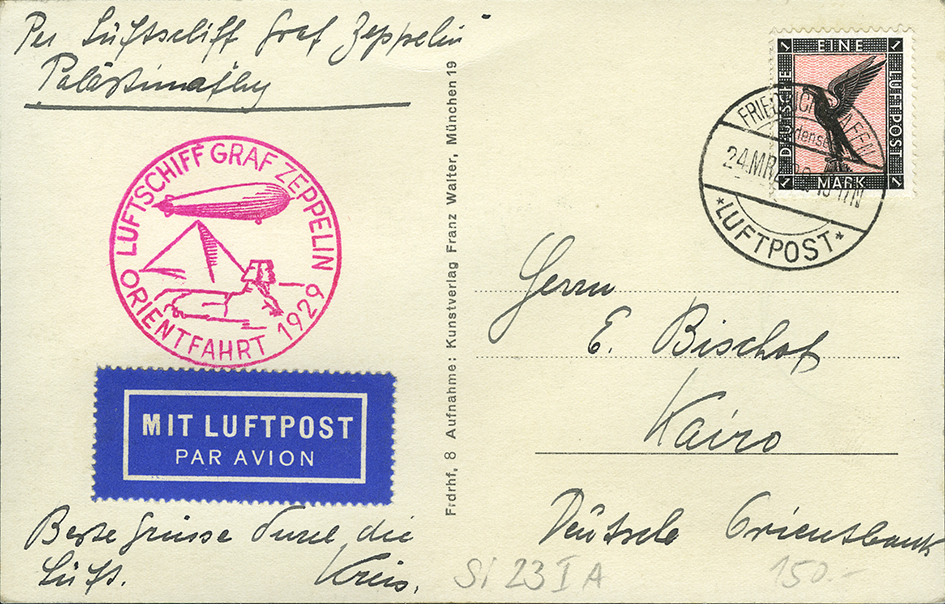 Per Luftschiff Graf Zeppelin
Palästinaflug
LUFTSCHIFF GRAF ZEPPELIN
ORIENTFAHRT 1929
MIT LUFTPOST
PAR AVION
Beste Grüsse durch die
Luft. Kreis.
Frdrhf, 8 Aufnahme: Kunstverlag Franz Walter, München 19
1 EINE 1
DEUTSCHE
LUFTPOST
1 MARK 1
FRIEDRICHSHAFEN
24.MRZ
*LUFTPOST*
Herrn
E. Bischof
Kairo
Deutsche Orientbank
Si 23 I A
150-